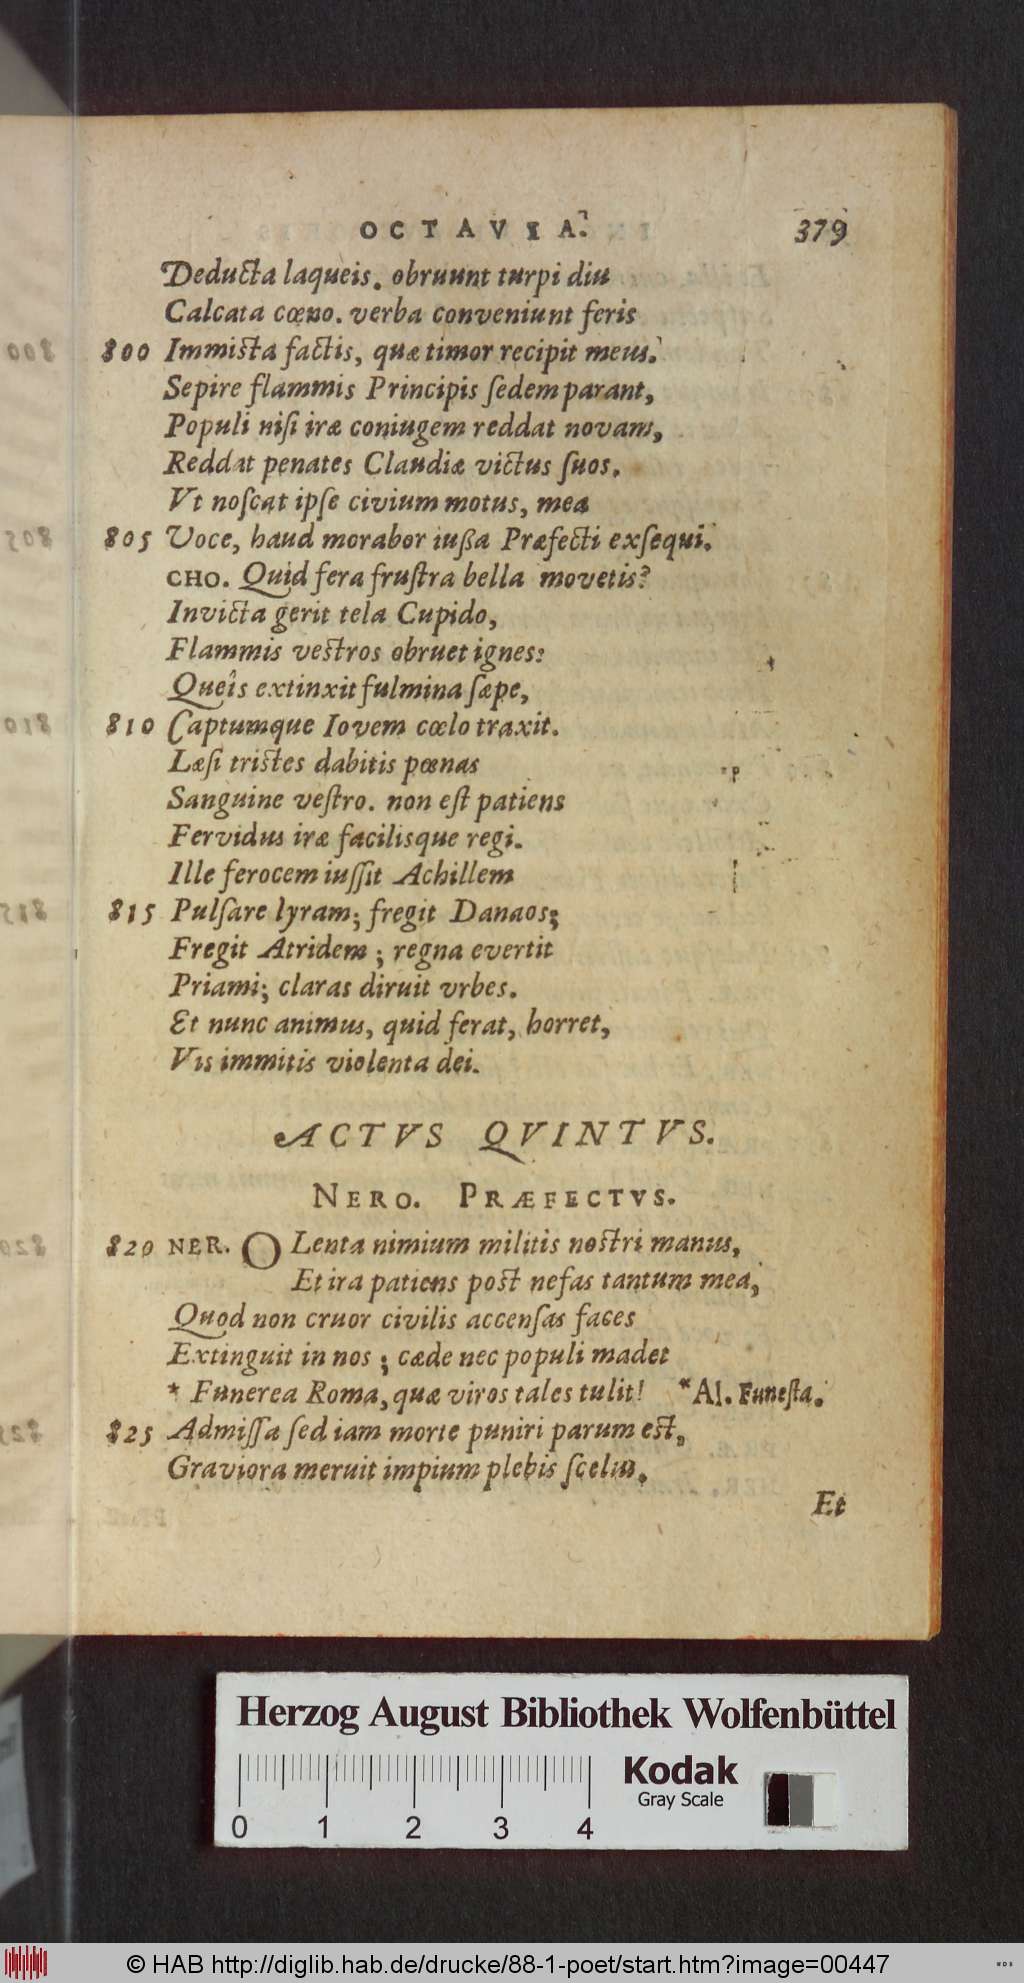 OCTAVIA. 379
Deducta laqueis. obruunt turpi diu
Calcata cœno. verba conveniunt feris
800 Immista factis, quæ timor recipit meus.
Sepire flammis Principis ſedem parant,
Populi niſi iræ coniugem reddat novam,
Reddat penates Claudiæ victus ſuos.
Vt noſcat ipſe civium motus, mea
805 Voce, haud morabor iußa Præfecti exſequi.
CHO. Quid fera fruſtra bella movetis?
Invicta gerit tela Cupido,
Flammis veſtros obruet ignes:
Queîs extinxit fulmina ſæpe,
810 Captumque Iovem cœlo traxit.
Læſi triſtes dabitis pœnas
Sanguine veſtro. non eſt patiens
Fervidus iræ facilisque regi.
Ille ferocem iuſſit Achillem
815 Pulſare lyram; fregit Danaos;
Fregit Atridem; regna evertit
Priami; claras diruit vrbes.
Et nunc animus, quid ferat, horret,
Vis immitis violenta dei.
ACTVS QVINTVS.
NERO. PRÆFECTVS.
820 NER. O Lenta nimium militis noſtri manus,
Et ira patiens poſt nefas tantum mea,
Quod non cruor civilis accenſas faces
Extinguit in nos; cæde nec populi madet
* Funerea Roma, quæ viros tales tulit! *Al. Funeſta.
825 Admiſſa ſed iam morte puniri parum eſt,
Graviora meruit impium plebis ſcelus.
Et
800
805
810
815
820
825
Herzog August Bibliothek Wolfenbüttel
Kodak
Gray Scale
0 1 2 3 4
© HAB http://diglib.hab.de/drucke/88-1-poet/start.htm?image=00447